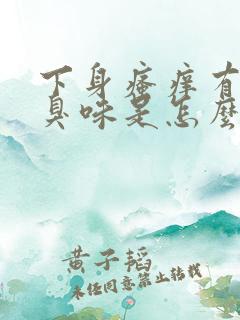 下身瘙痒有
臭味是怎么
黄子韬
未经同意禁止转载